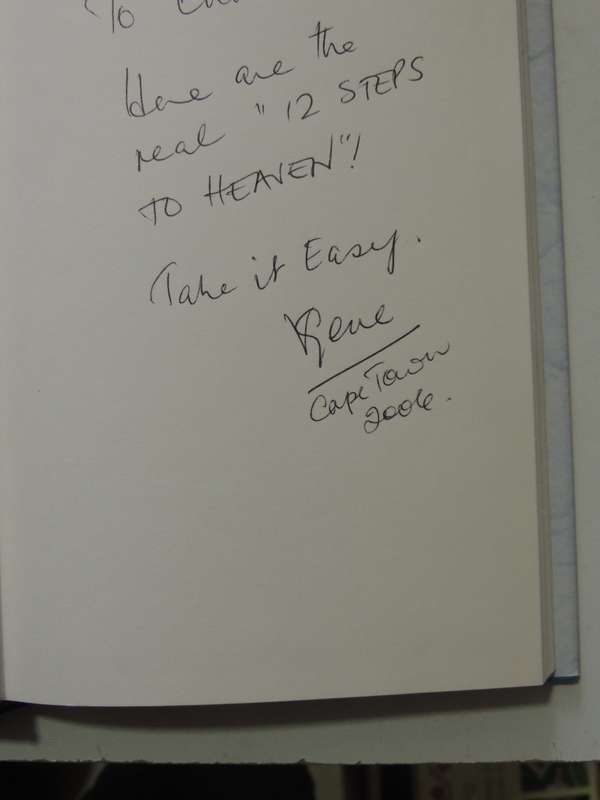 To
Here are the
real "12 STEPS
TO HEAVEN"!
Take it Easy.
Cape Town
2006.